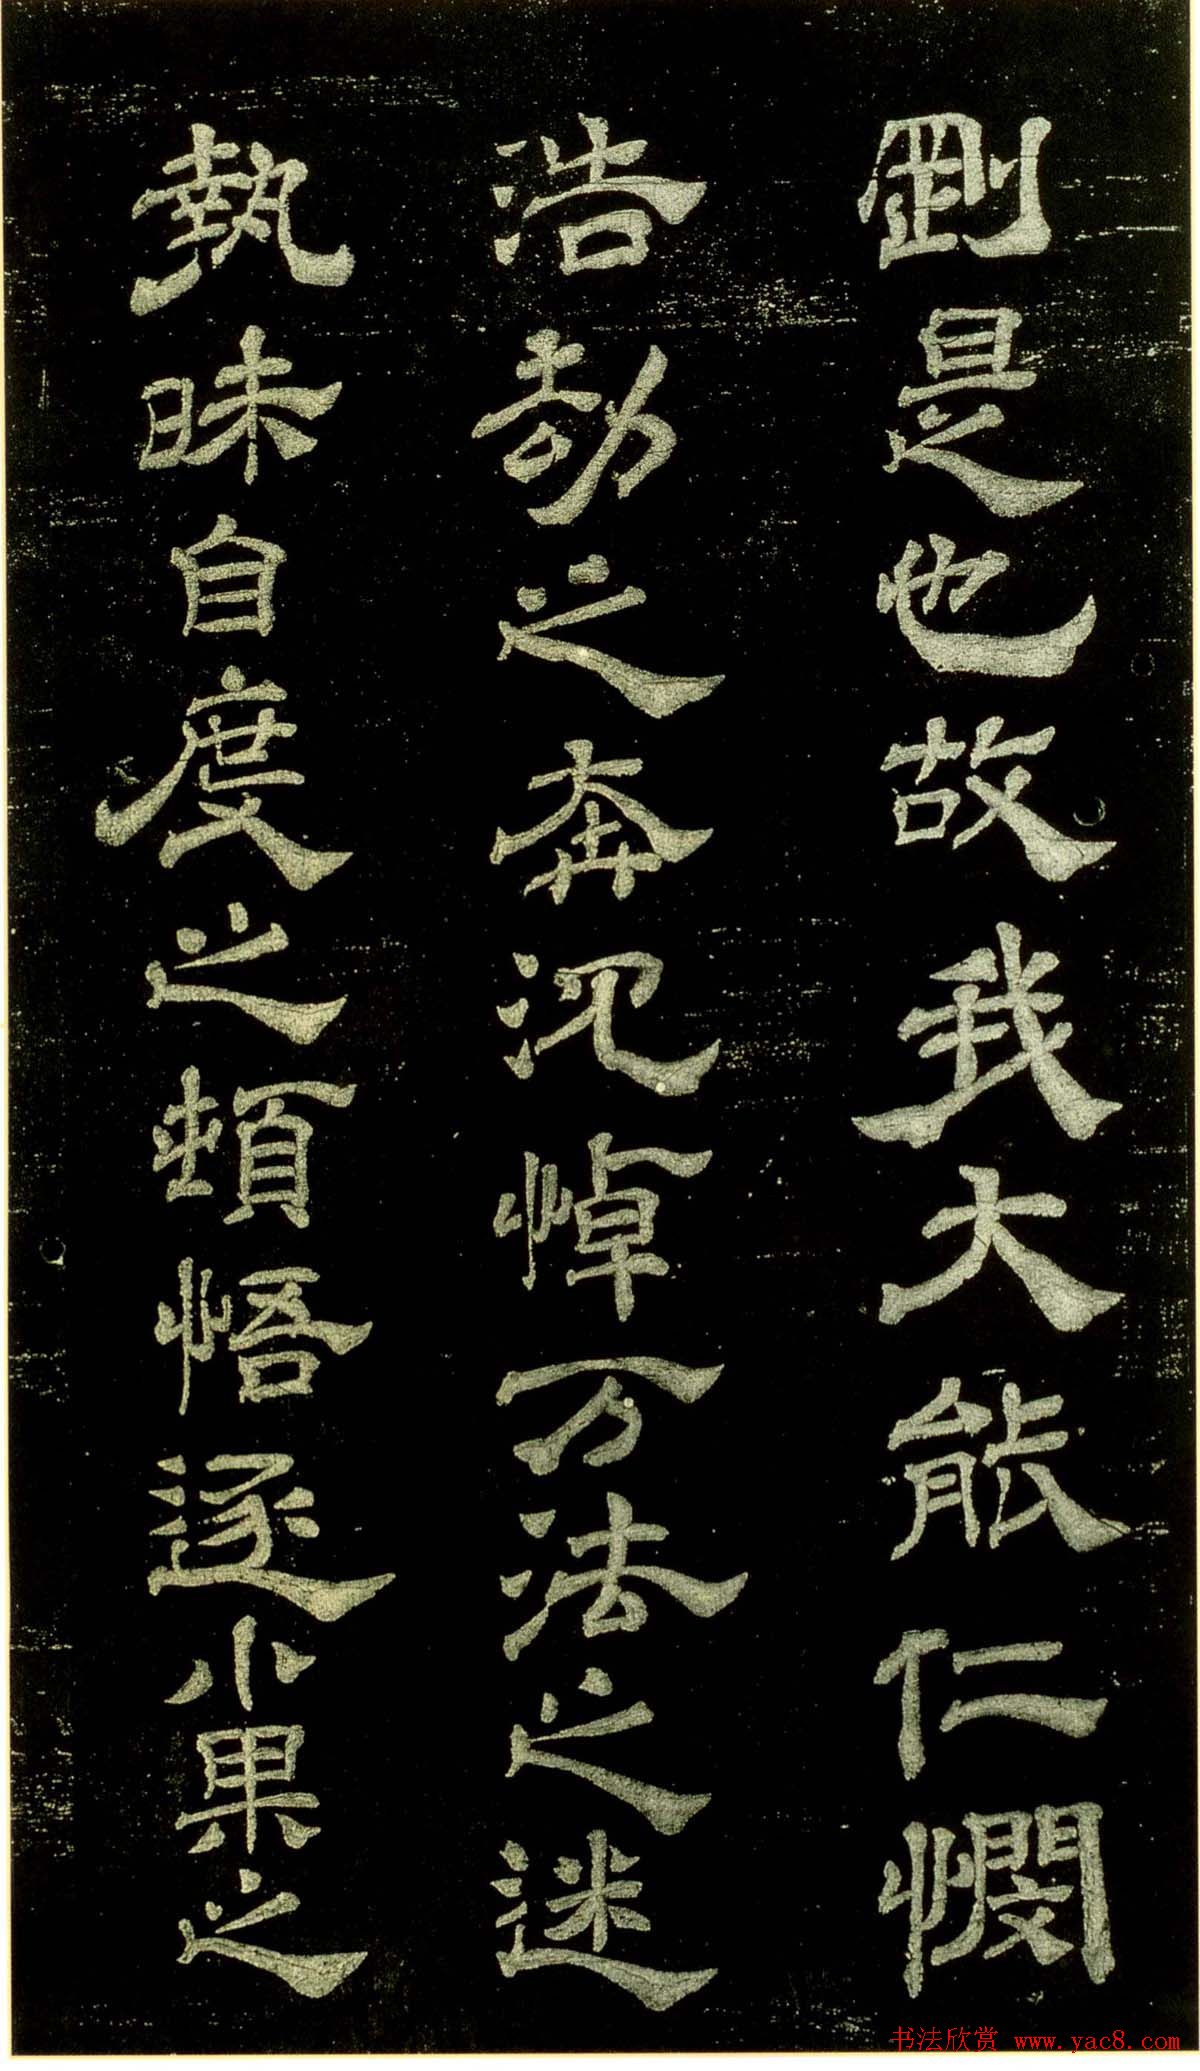 剛是也故我大能仁憫
浩劫之奔沉悼万法之迷
執昧自度之頓悟逐小果之
书法欣赏 www.yac8.com